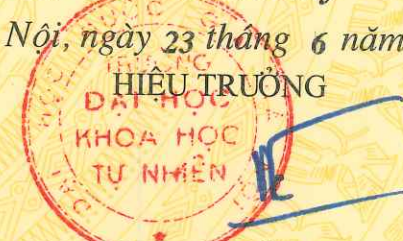 Nội, ngày 23 tháng 6 năm
HIỆU TRƯỞNG
TRƯỜNG
ĐẠI HỌC
KHOA HỌC
TỰ NHIÊN